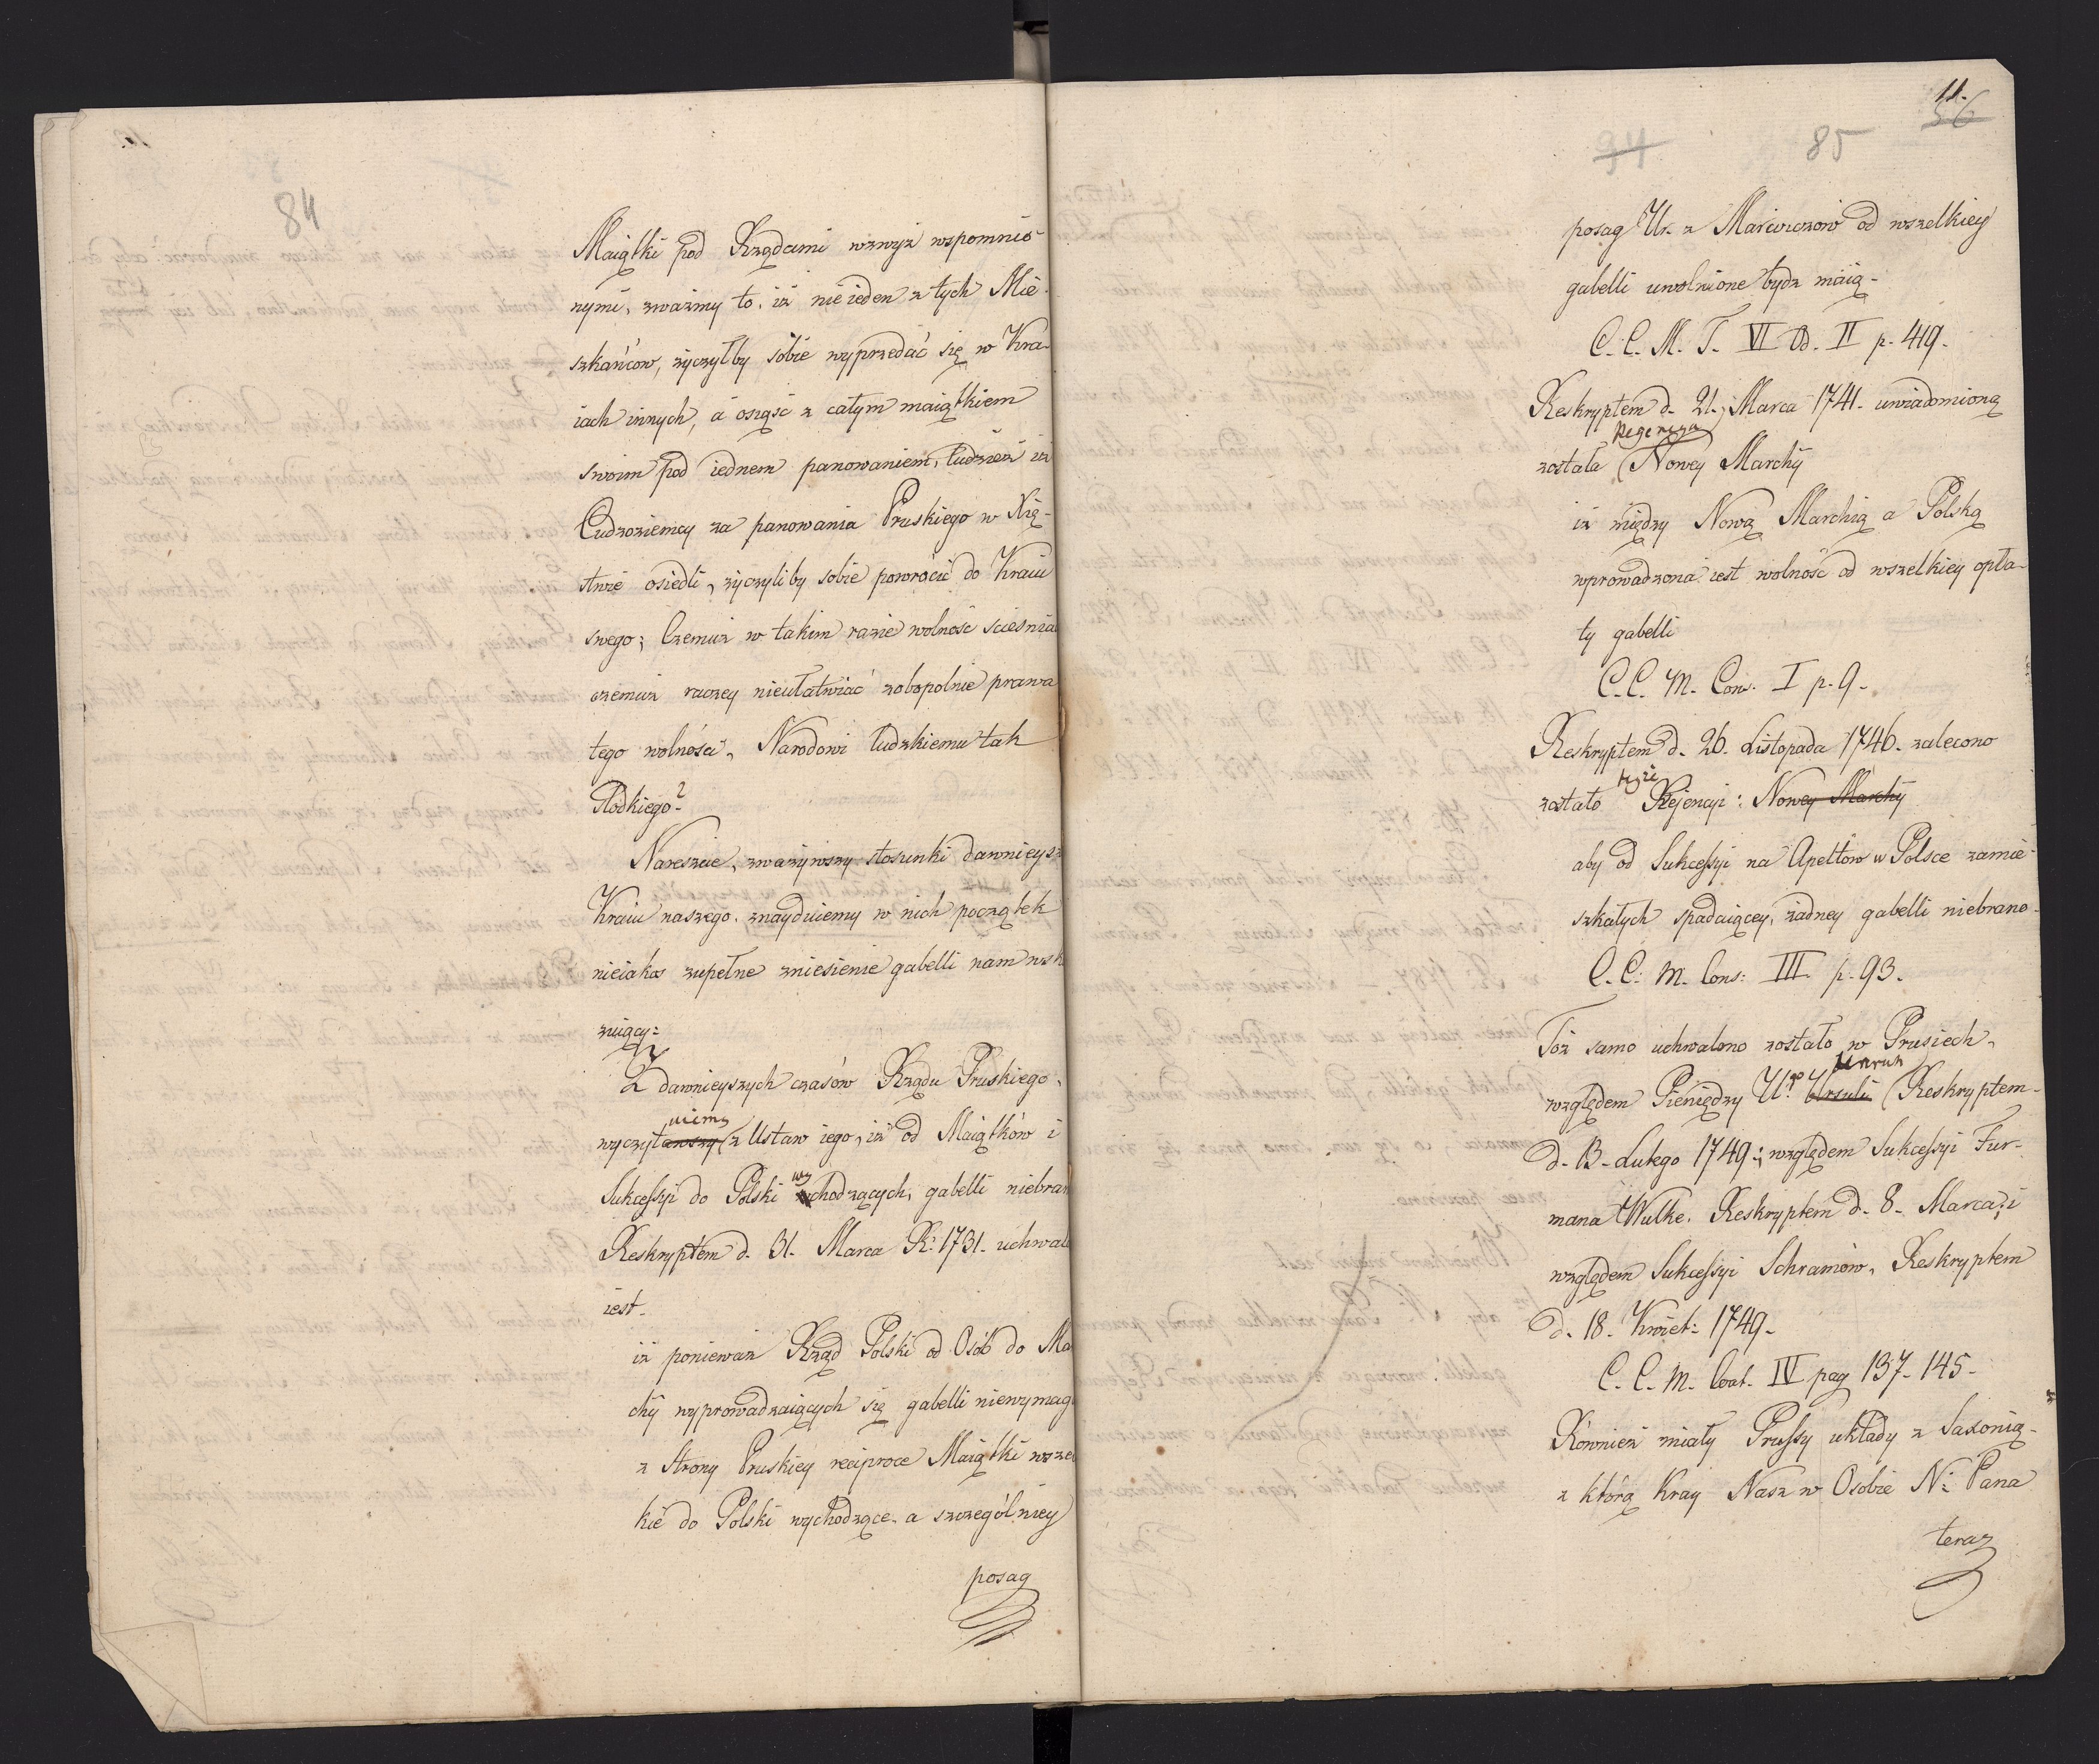 84
Maiątki pod Rządami wzwyż wzpomnio-
nymi, zważmy to, iż nieieden z tych Mie-
szkańcow, życzyłby sobie wyprzedać się w Kra-
iach innych, a osiąść z całym maiątkiem
swoim pod iednem panowaniem, tudzież iż
Cudzoziemcy za panowania Pruskiego w Xię-
stwie osiedli, życzyliby sobie powrócić do Kraiu
swego; Czemuż w takim razie wolność ściesnia
czemuż raczey nieułatwiać zobopolnie prawa
tego wolności, Narodowi ludzkiemu tak
słodkiego?
Nareszcie, zważywszy stosunki dawnieysz
Kraiu naszego, znayduiemy w nich początek
nieiako zupełne zniesienie gabelli nam wsk
zuiący:
Z dawnieyszych czasów Rządu Pruskiego,
uiemy
wyczytawszy z Ustaw iego, iż od Maiątków i
wy
Sukcessyi do Polski chodzących, gabelli niebran
Reskryptem d. 31. Marca R. 1731. uchwalo
iest.
iż ponieważ Rząd Polski od Osób do Ma
chy wyprowadzaiących się gabelli niewymaga
z strony Pruskiey reciproce Maiątki wszel
kie do Polski wychodzące, a szczególniey
posag
11.
56
94 85
posag Ur. z Marwiczow od wszelkiey
gabelli uwolnione bydz maią-
C. C. M. T. VI Ab. II p. 419.
Reskryptem d. 21. Marca 1741. uwiadomioną
Regencya
została Nowey Marchy
iż między Nową Marchią a Polską
wprowadzona iest wolność od wszelkiey opła-
ty gabelli
C. C. M. Con. I p. 9.
Reskryptem d. 26. Listopada 1746. zalecono
teyże
zostało Rejencyi: Nowey Marchy
aby od Sukcessyi na Apeltow w Polsce zamie-
szkałych spadaiącey, żadney gabelli niebrano.
C. C. M. Cons: III. p. 93.
Toż samo uchwalono zostało w Prusiech,
Unruh
względem Pieniędzy Ugo Ursuli Reskryptem
d. 13. Lutego 1749.; względem Sukcessyi Fur-
mana Wulke, Reskryptem d. 8. Marca; i
względem Sukcessyi Schramów, Reskryptem
d. 18. Kwiet: 1749.
C. C. M. Cont. IV pag 137. 145.
Również miały Prussy układy z Saxonią,
z którą Kray Nasz w Osobie N. Pana
teraz